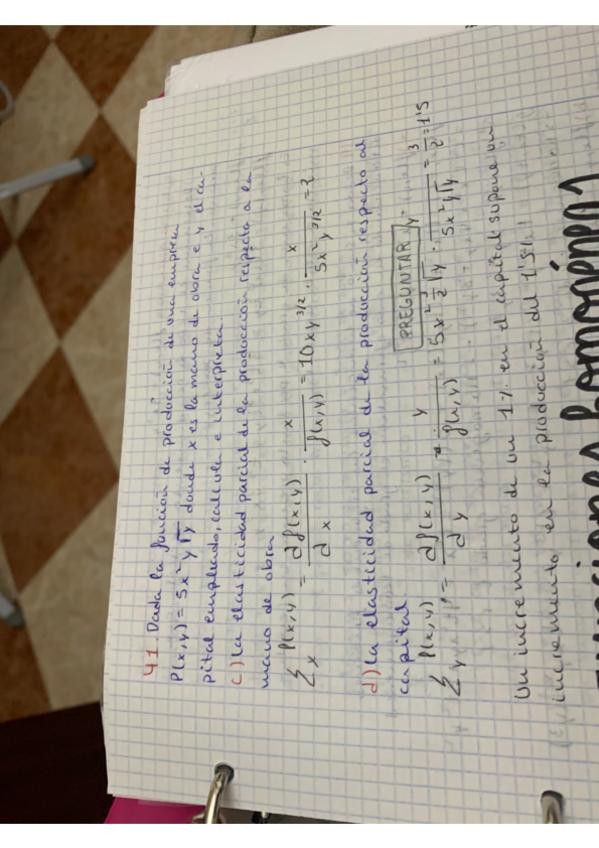 41. Dada la función de producción de una empresa
P(x,y) = 5x² y √y donde x es la mano de obra e y el ca-
pital empleado, calcula e interpreta.
c) La elasticidad parcial de la producción respecto a la
mano de obra
Σx P(x,y) = dP(x,y)/dx · x/P(x,y) = 10xy^3/2 · x/5x² y^3/2 = 2
d) La elasticidad parcial de la producción respecto al
capital.
PREGUNTAR
Σy P(x,y) = dP(x,y)/dy · y/P(x,y) = 5x² 3/2 √y · y/5x² y√y = 3/2 = 1'5
Un incremento de un 1% en el capital supone un
incremento en la producción del 1'5%!